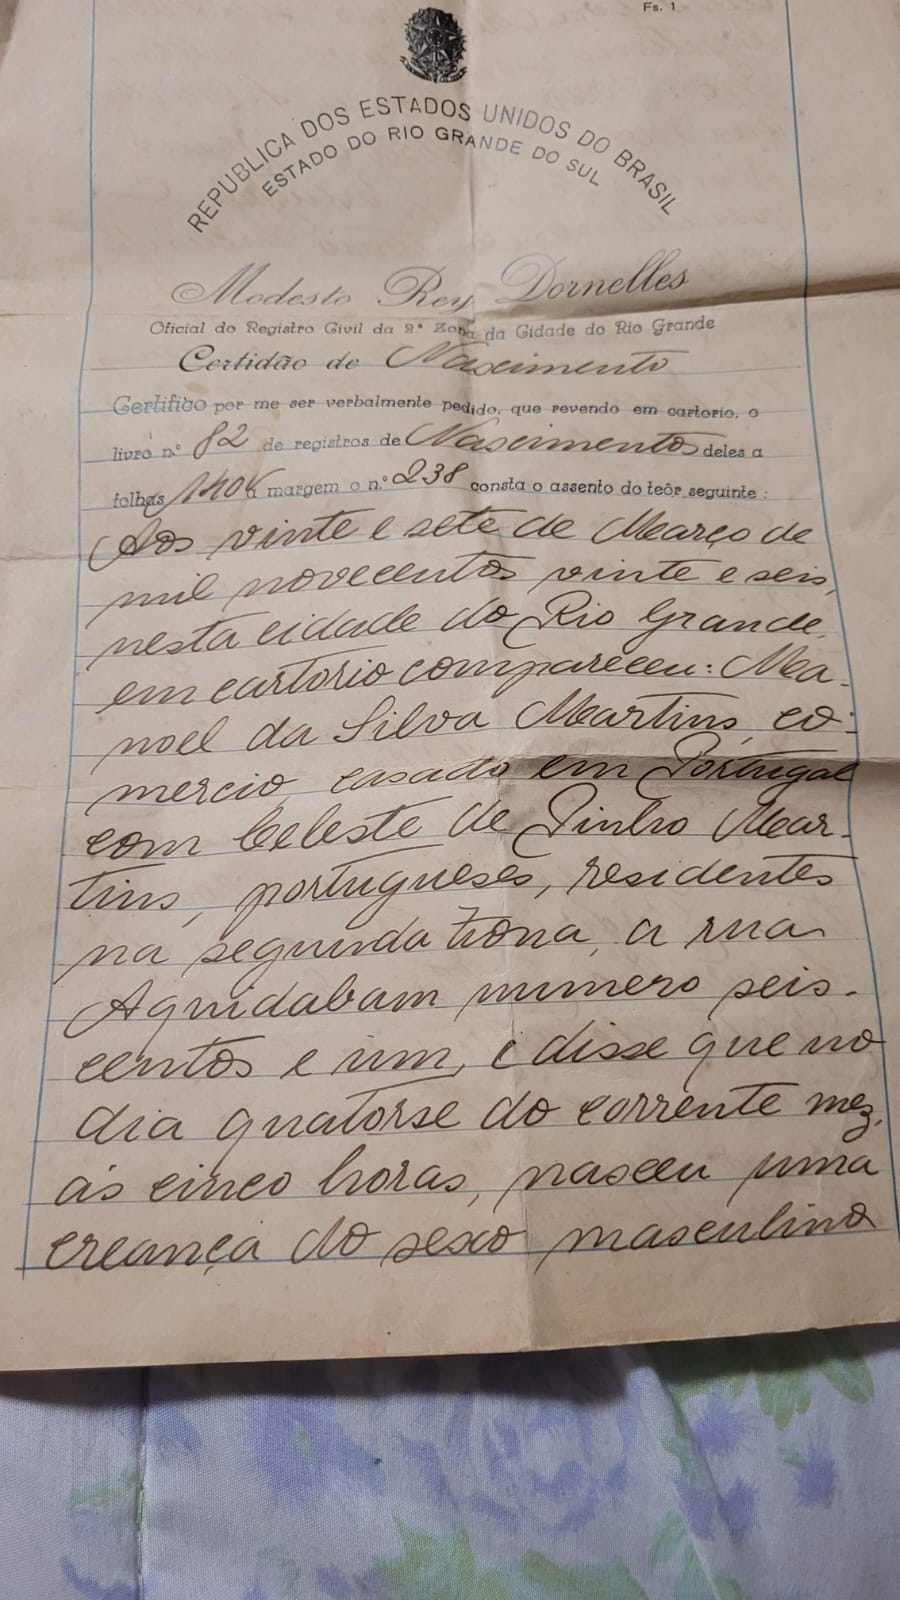 Fs. 1
REPUBLICA DOS ESTADOS UNIDOS DO BRASIL
ESTADO DO RIO GRANDE DO SUL
Modesto Rey Dornelles
Oficial do Registro Civil da 2.ª Zona da Cidade do Rio Grande
Certidão de Nascimento
Certifico por me ser verbalmente pedido, que revendo em cartorio, o
livro n.º 82 de registros de Nascimentos deles a
folhas á margem o n.º 238 consta o assento do teôr seguinte:
Aos vinte e sete de Março de
mil novecentos vinte e seis,
nesta cidade do Rio Grande,
em cartorio compareceu: Ma-
noel da Silva Martins, co-
mercio, casado em Portugal
com Celeste de Pinho Mar-
tins, portugueses, residentes
na segunda zona, a rua
Aquidabam numero seis-
centos e um, e disse que no
dia quatorse do corrente mez,
ás cinco horas, nasceu uma
creança do sexo masculino